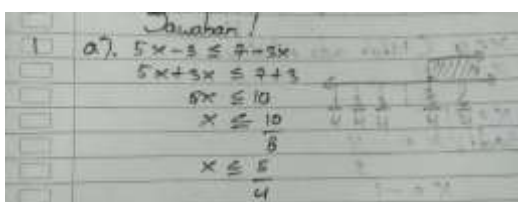 Jawaban !
1 a). 5x - 3 ≤ 7 - 3x
5x + 3x ≤ 7 + 3
8x ≤ 10
x ≤ 10/8
x ≤ 5/4